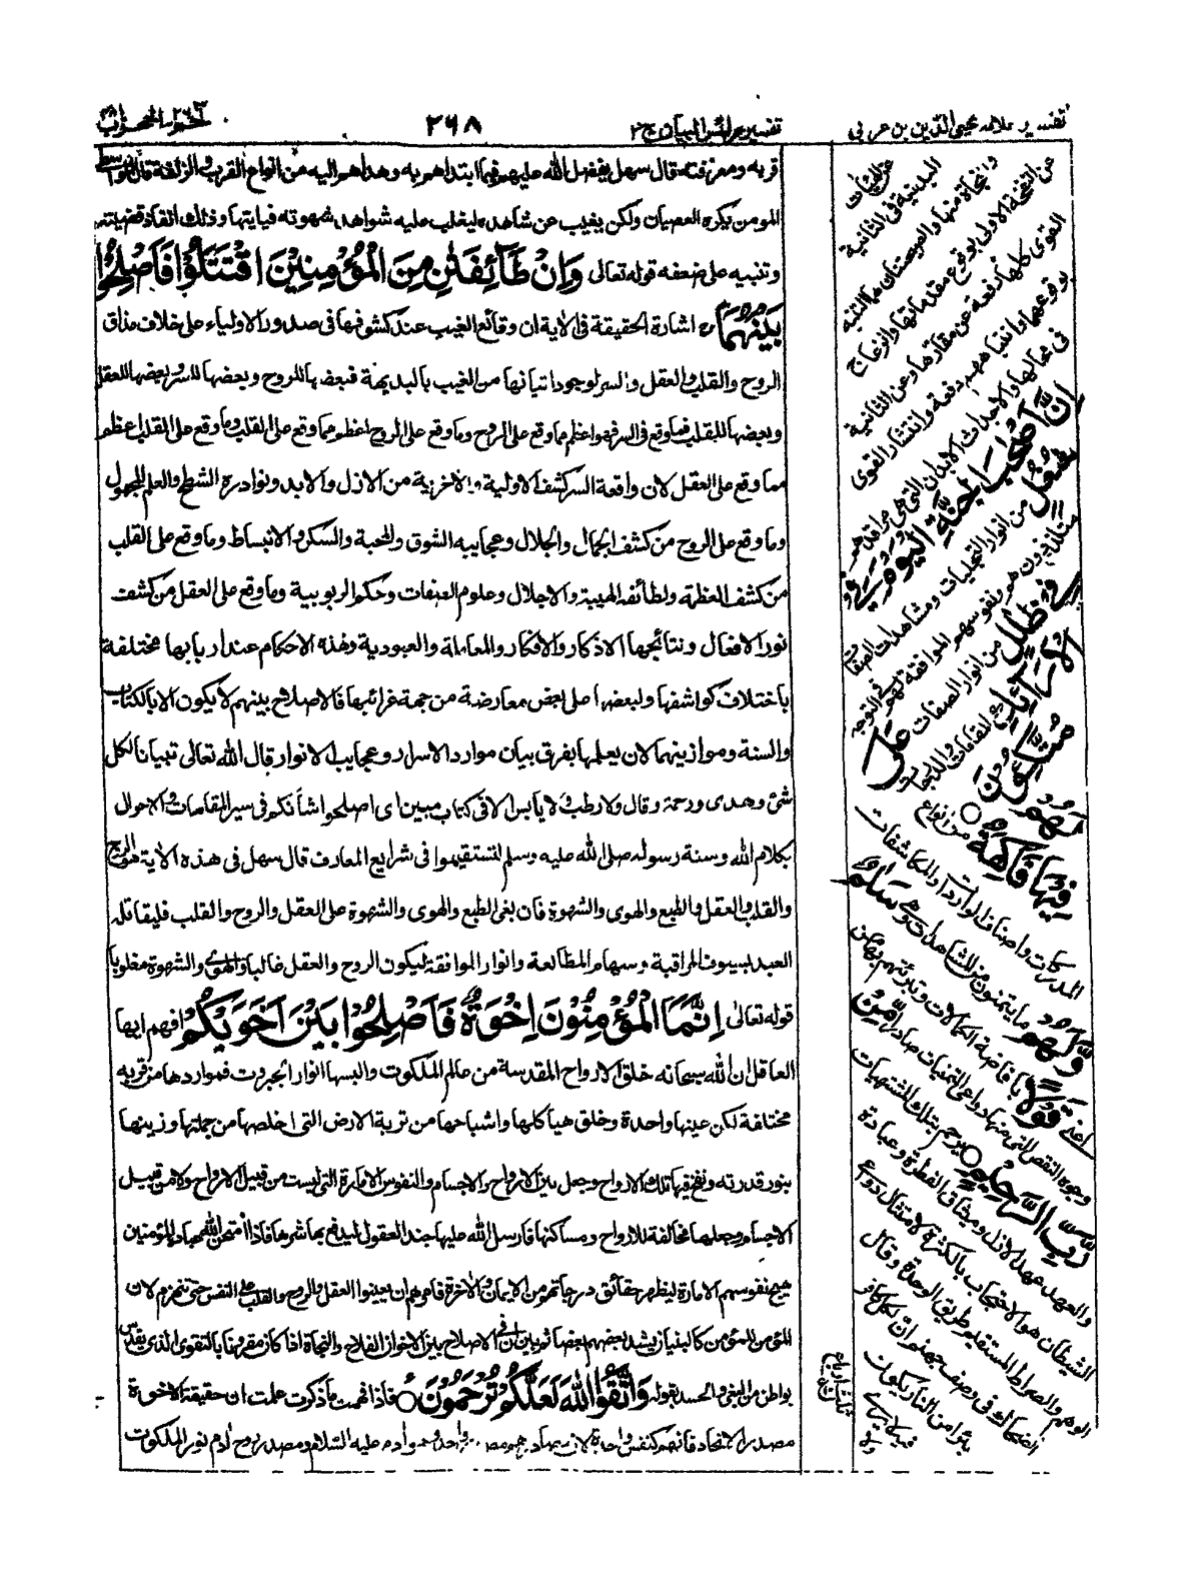 تفسير علامه محيى الدين بن عربى
تفسير عرائس البيان ج ٢
٢٦٨
قربه ومعرفته قال سهل بفضل الله عليهم فيما ابتداهم به وهداهم اليه من انواع القرب والزلفة قال
المومن يكره العصيان ولكن يغيب عن شاهده ليغلب عليه شواهد شهوته
وتنبيه على ضعفه قوله تعالى وَاِنْ طَآئِفَتٰنِ مِنَ الْمُؤْمِنِيْنَ اقْتَتَلُوْا فَاَصْلِحُوْا
بَيْنَهُمَا اشارة الحقيقة فى الاية ان وقائع الغيب عند كشوفها فى صدور الاولياء على خلاف مذاق
الروح والقلب والعقل والسر لوجود اتيانها من الغيب بالبديهة فبعضها للروح وبعضها للسر وبعضها للعقل
وبعضها للقلب فما وقع فى السر فهو اعظم مما وقع على الروح وما وقع على الروح اعظم مما وقع على القلب وما وقع على القلب اعظم
مما وقع على العقل لان واقعة السر كشف الاولية والاخرية من الازل والابد ونوادره الشطح والعلم المجهول
وما وقع على الروح من كشف الجمال والجلال وعجايبه الشوق والمحبة والسكر والانبساط وما وقع على القلب
من كشف العظمة ولطائفه الهيبة والاجلال وعلوم الصفات وحكم الربوبية وما وقع على العقل من كشف
نور الافعال ونتائجها الاذكار والافكار والمعاملة والعبودية وهذه الاحكام عند اربابها مختلفة
باختلاف كواشفها ولبعضها على بعض معارضة من جهة غرائبها فالاصلاح بينهم لا يكون الا بالكتاب
والسنة وموازينهما لان يعلمها بفرق بيان موارد الاسرار وعجايب الانوار قال الله تعالى تبيانا لكل
شئ وهدى ورحمة وقال ولا رطب ولا يابس الا فى كتاب مبين اى اصلحوا شأنكم فى سير المقامات والاحوال
بكلام الله وسنة رسوله صلى الله عليه وسلم لتستقيموا فى شرايع المعارف قال سهل فى هذه الاية هو الروح
والقلب والعقل والطبع والهوى والشهوة فان بغى الطبع والهوى والشهوة على العقل والروح والقلب فليقاتله
العبد بسيوف المراقبة وسهام المطالعة وانوار الموافقة ليكون الروح والعقل غالبا والهوى والشهوة مغلوبا
قوله تعالى اِنَّمَا الْمُؤْمِنُوْنَ اِخْوَةٌ فَاَصْلِحُوْا بَيْنَ اَخَوَيْكُمْ افهم ايها
العاقل ان الله سبحانه خلق الارواح المقدسة من عالم الملكوت والبسها انوار الجبروت فمواردها من قربه
مختلفة لكن عينها واحدة وخلق هياكلها واشباحها من تربة الارض التى اخلصها من جملتها وزينها
بنور قدرته ونفخ فيها تلك الارواح وجعل بين الارواح والاجسام والنفوس الامارة التى ليست من قبيل الارواح ولا من قبيل
الاجسام وجعلها مخالفة للارواح ومساكنها فارسل الله عليها جند العقول ليدفع بها شرها فاذا امتحن الله عباده المؤمنين
هيج نفوسهم الامارة ليظهر حقائق درجاتهم من الايمان والاخرة فامرهم ان يعينوا العقل والروح والقلب على النفس حتى تنهزم لان
المؤمن للمؤمن كالبنيان يشد بعضهم بعضا ثم بين ان فى الاصلاح بين الاخوان الفلاح والنجاة اذا كان مقرونا بالتقوى الذى
بواطن من البغى والحسد بقوله وَاتَّقُوا اللهَ لَعَلَّكُمْ تُرْحَمُوْنَ فاذا فهمت ما ذكرت علمت ان حقيقة الاخوة
مصدر الاتحاد فانهم كنفس واحدة لان وادم عليه السلام ومصدر روح ادم نور الملكوت
عن النفخة الاولى بوقوع مقدماتها وانزعاج
القوى كلها دفعة عن مقارها وعن الثانية
بوقوعها وانتباههم دفعة وانتشار القوى
اِنَّ اَصْحٰبَ الْجَنَّةِ الْيَوْمَ فِىْ
شُغُلٍ من انوار التجليات ومشاهدات الصفات
فِىْ ظِلٰلٍ من انوار الصفات عَلَى
الْاَرَآئِكِ
مُتَّكِـُٔوْنَ
لَهُمْ
فِيْهَا فَاكِهَةٌ من انواع
المدركات واصناف الواردات والمكاشفات
وَّلَهُمْ ما يتمنون من المشاهدات وهى سَلٰمٌ
قَوْلًا
رَّبٍّ الرَّحِيْمِ
والعهد عهد الازل وميثاق الفطرة وعبادة
الشيطان هو الاحتجاب بالكثرة لامتثال دواعى
الوهم والصراط المستقيم طريق الوحدة وقال
الضحاك فى وصف جهنم ان لكل كافر
بئرا من النار يكون
فيه لا يرى
ولا